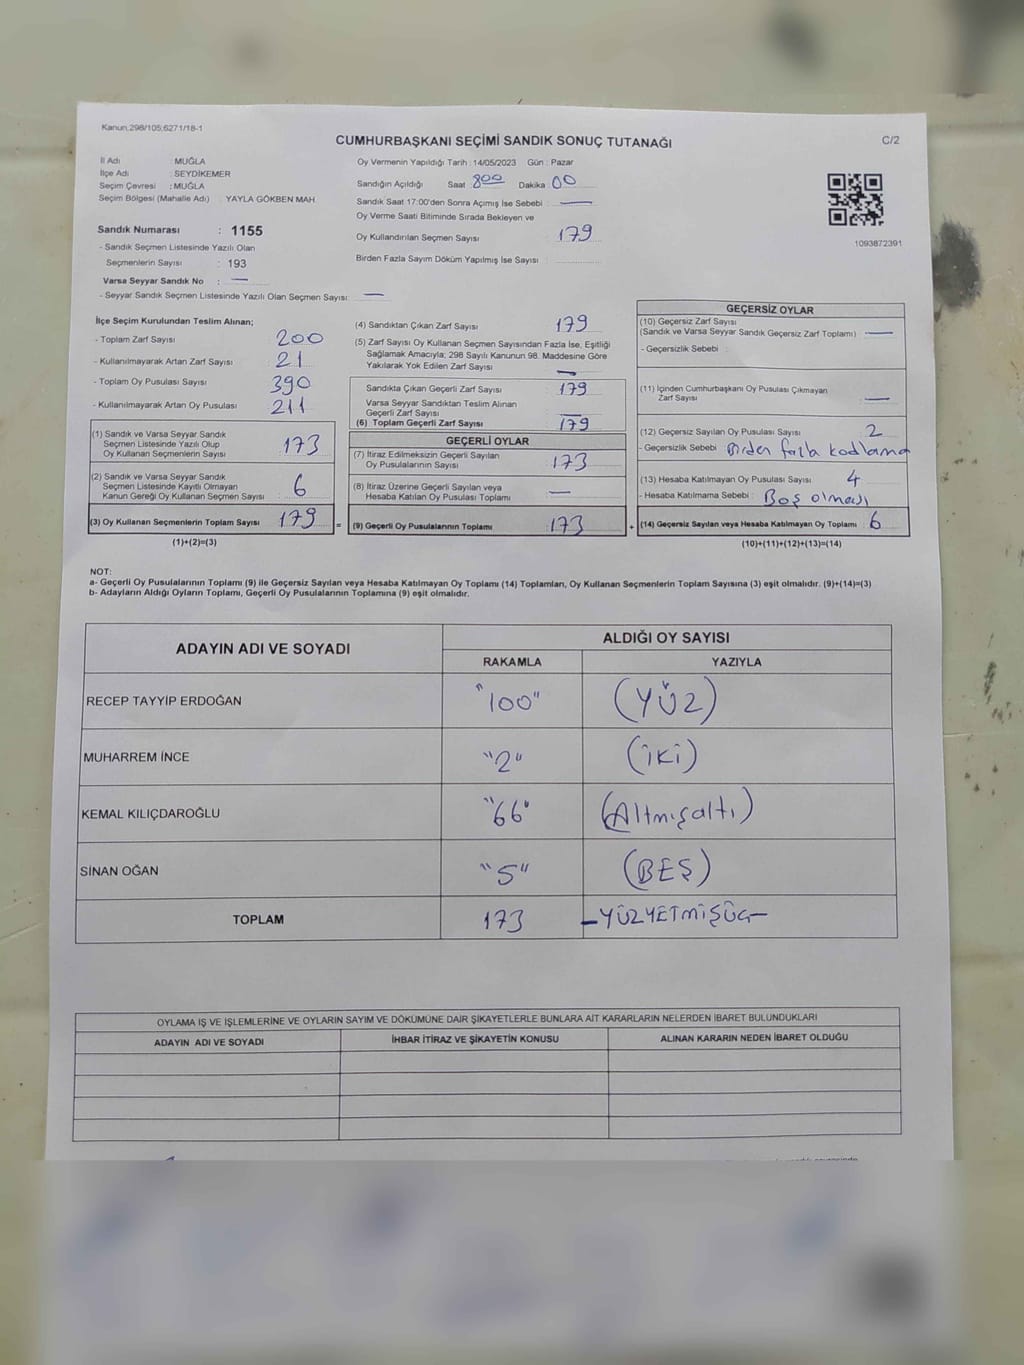 Kanun,298/105;6271/18-1
CUMHURBAŞKANI SEÇİMİ SANDIK SONUÇ TUTANAĞI
C/2
İl Adı : MUĞLA
İlçe Adı : SEYDİKEMER
Seçim Çevresi : MUĞLA
Seçim Bölgesi (Mahalle Adı) : YAYLA GÖKBEN MAH.
Oy Vermenin Yapıldığı Tarih : 14/05/2023 Gün : Pazar
Sandığın Açıldığı Saat 800 Dakika 00
Sandık Saat 17:00'den Sonra Açımış İse Sebebi : —
Oy Verme Saati Bitiminde Sırada Bekleyen ve
Oy Kullandırılan Seçmen Sayısı : 179
Birden Fazla Sayım Döküm Yapılmış İse Sayısı :
1093872391
Sandık Numarası : 1155
- Sandık Seçmen Listesinde Yazılı Olan
Seçmenlerin Sayısı : 193
Varsa Seyyar Sandık No : —
- Seyyar Sandık Seçmen Listesinde Yazılı Olan Seçmen Sayısı: —
İlçe Seçim Kurulundan Teslim Alınan;
- Toplam Zarf Sayısı 200
- Kullanılmayarak Artan Zarf Sayısı 21
- Toplam Oy Pusulası Sayısı 390
- Kullanılmayarak Artan Oy Pusulası 211
(1) Sandık ve Varsa Seyyar Sandık
Seçmen Listesinde Yazılı Olup
Oy Kullanan Seçmenlerin Sayısı 173
(2) Sandık ve Varsa Seyyar Sandık
Seçmen Listesinde Kayıtlı Olmayan
Kanun Gereği Oy Kullanan Seçmen Sayısı 6
(3) Oy Kullanan Seçmenlerin Toplam Sayısı 179 =
(1)+(2)=(3)
(4) Sandıktan Çıkan Zarf Sayısı 179
(5) Zarf Sayısı Oy Kullanan Seçmen Sayısından Fazla İse, Eşitliği
Sağlamak Amacıyla; 298 Sayılı Kanunun 98. Maddesine Göre
Yakılarak Yok Edilen Zarf Sayısı —
Sandıkta Çıkan Geçerli Zarf Sayısı 179
Varsa Seyyar Sandıktan Teslim Alınan
Geçerli Zarf Sayısı —
(6) Toplam Geçerli Zarf Sayısı 179
GEÇERLİ OYLAR
(7) İtiraz Edilmeksizin Geçerli Sayılan
Oy Pusulalarının Sayısı 173
(8) İtiraz Üzerine Geçerli Sayılan veya
Hesaba Katılan Oy Pusulası Toplamı —
(9) Geçerli Oy Pusulalarının Toplamı 173 +
GEÇERSİZ OYLAR
(10) Geçersiz Zarf Sayısı
(Sandık ve Varsa Seyyar Sandık Geçersiz Zarf Toplamı) —
- Geçersizlik Sebebi :
(11) İçinden Cumhurbaşkanı Oy Pusulası Çıkmayan
Zarf Sayısı —
(12) Geçersiz Sayılan Oy Pusulası Sayısı 2
- Geçersizlik Sebebi Birden fazla kodlama
(13) Hesaba Katılmayan Oy Pusulası Sayısı 4
- Hesaba Katılmama Sebebi : Boş olması
(14) Geçersiz Sayılan veya Hesaba Katılmayan Oy Toplamı 6
(10)+(11)+(12)+(13)=(14)
NOT:
a- Geçerli Oy Pusulalarının Toplamı (9) ile Geçersiz Sayılan veya Hesaba Katılmayan Oy Toplamı (14) Toplamları, Oy Kullanan Seçmenlerin Toplam Sayısına (3) eşit olmalıdır. (9)+(14)=(3)
b- Adayların Aldığı Oyların Toplamı, Geçerli Oy Pusulalarının Toplamına (9) eşit olmalıdır.
ADAYIN ADI VE SOYADI ALDIĞI OY SAYISI
RAKAMLA YAZIYLA
RECEP TAYYİP ERDOĞAN "100" (YÜZ)
MUHARREM İNCE "2" (İKİ)
KEMAL KILIÇDAROĞLU "66" (Altmışaltı)
SİNAN OĞAN "5" (BEŞ)
TOPLAM 173 -YÜZYETMİŞÜÇ-
OYLAMA İŞ VE İŞLEMLERİNE VE OYLARIN SAYIM VE DÖKÜMÜNE DAİR ŞİKAYETLERLE BUNLARA AİT KARARLARIN NELERDEN İBARET BULUNDUKLARI
ADAYIN ADI VE SOYADI İHBAR İTİRAZ VE ŞİKAYETİN KONUSU ALINAN KARARIN NEDEN İBARET OLDUĞU